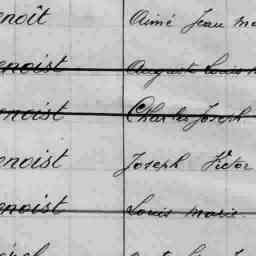 enoît Aimé Jean Ma
enoist Auguste Louis M
enoist Charles Joseph
enoist Joseph Victor
enoist Louis Marie